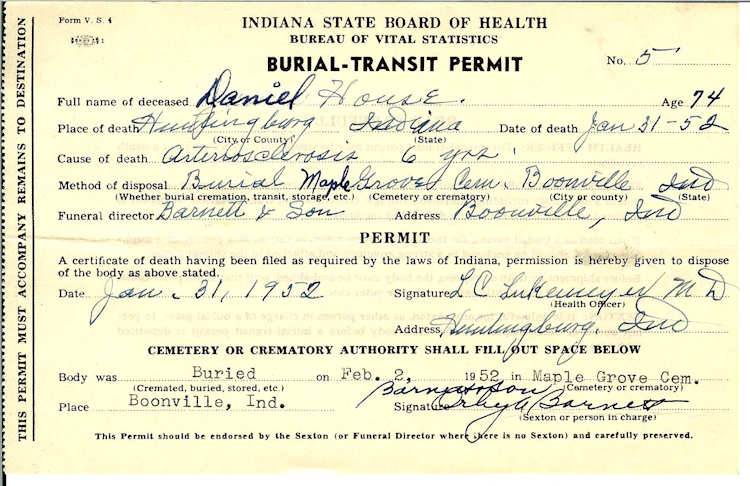 Form V. S. 4
INDIANA STATE BOARD OF HEALTH
BUREAU OF VITAL STATISTICS
BURIAL-TRANSIT PERMIT
No. 5
Full name of deceased Daniel House. Age 74
Place of death Huntingburg Indiana Date of death Jan 31-52
(City or County) (State)
Cause of death Arteriosclerosis 6 yrs.
Method of disposal Burial Maple Grove Cem. Boonville Ind
(Whether burial cremation, transit, storage, etc.) (Cemetery or crematory) (City or county) (State)
Funeral director Barnett & Son Address Boonville, Ind
PERMIT
A certificate of death having been filed as required by the laws of Indiana, permission is hereby given to dispose
of the body as above stated.
Date Jan. 31, 1952 Signature L C Lukemeyer M D
(Health Officer)
Address Huntingburg, Ind
CEMETERY OR CREMATORY AUTHORITY SHALL FILL OUT SPACE BELOW
Body was Buried on Feb. 2, 1952 in Maple Grove Cem.
(Cremated, buried, stored, etc.) (Cemetery or crematory)
Place Boonville, Ind. Signature Barnett
(Sexton or person in charge)
This Permit should be endorsed by the Sexton (or Funeral Director where there is no Sexton) and carefully preserved.
THIS PERMIT MUST ACCOMPANY REMAINS TO DESTINATION